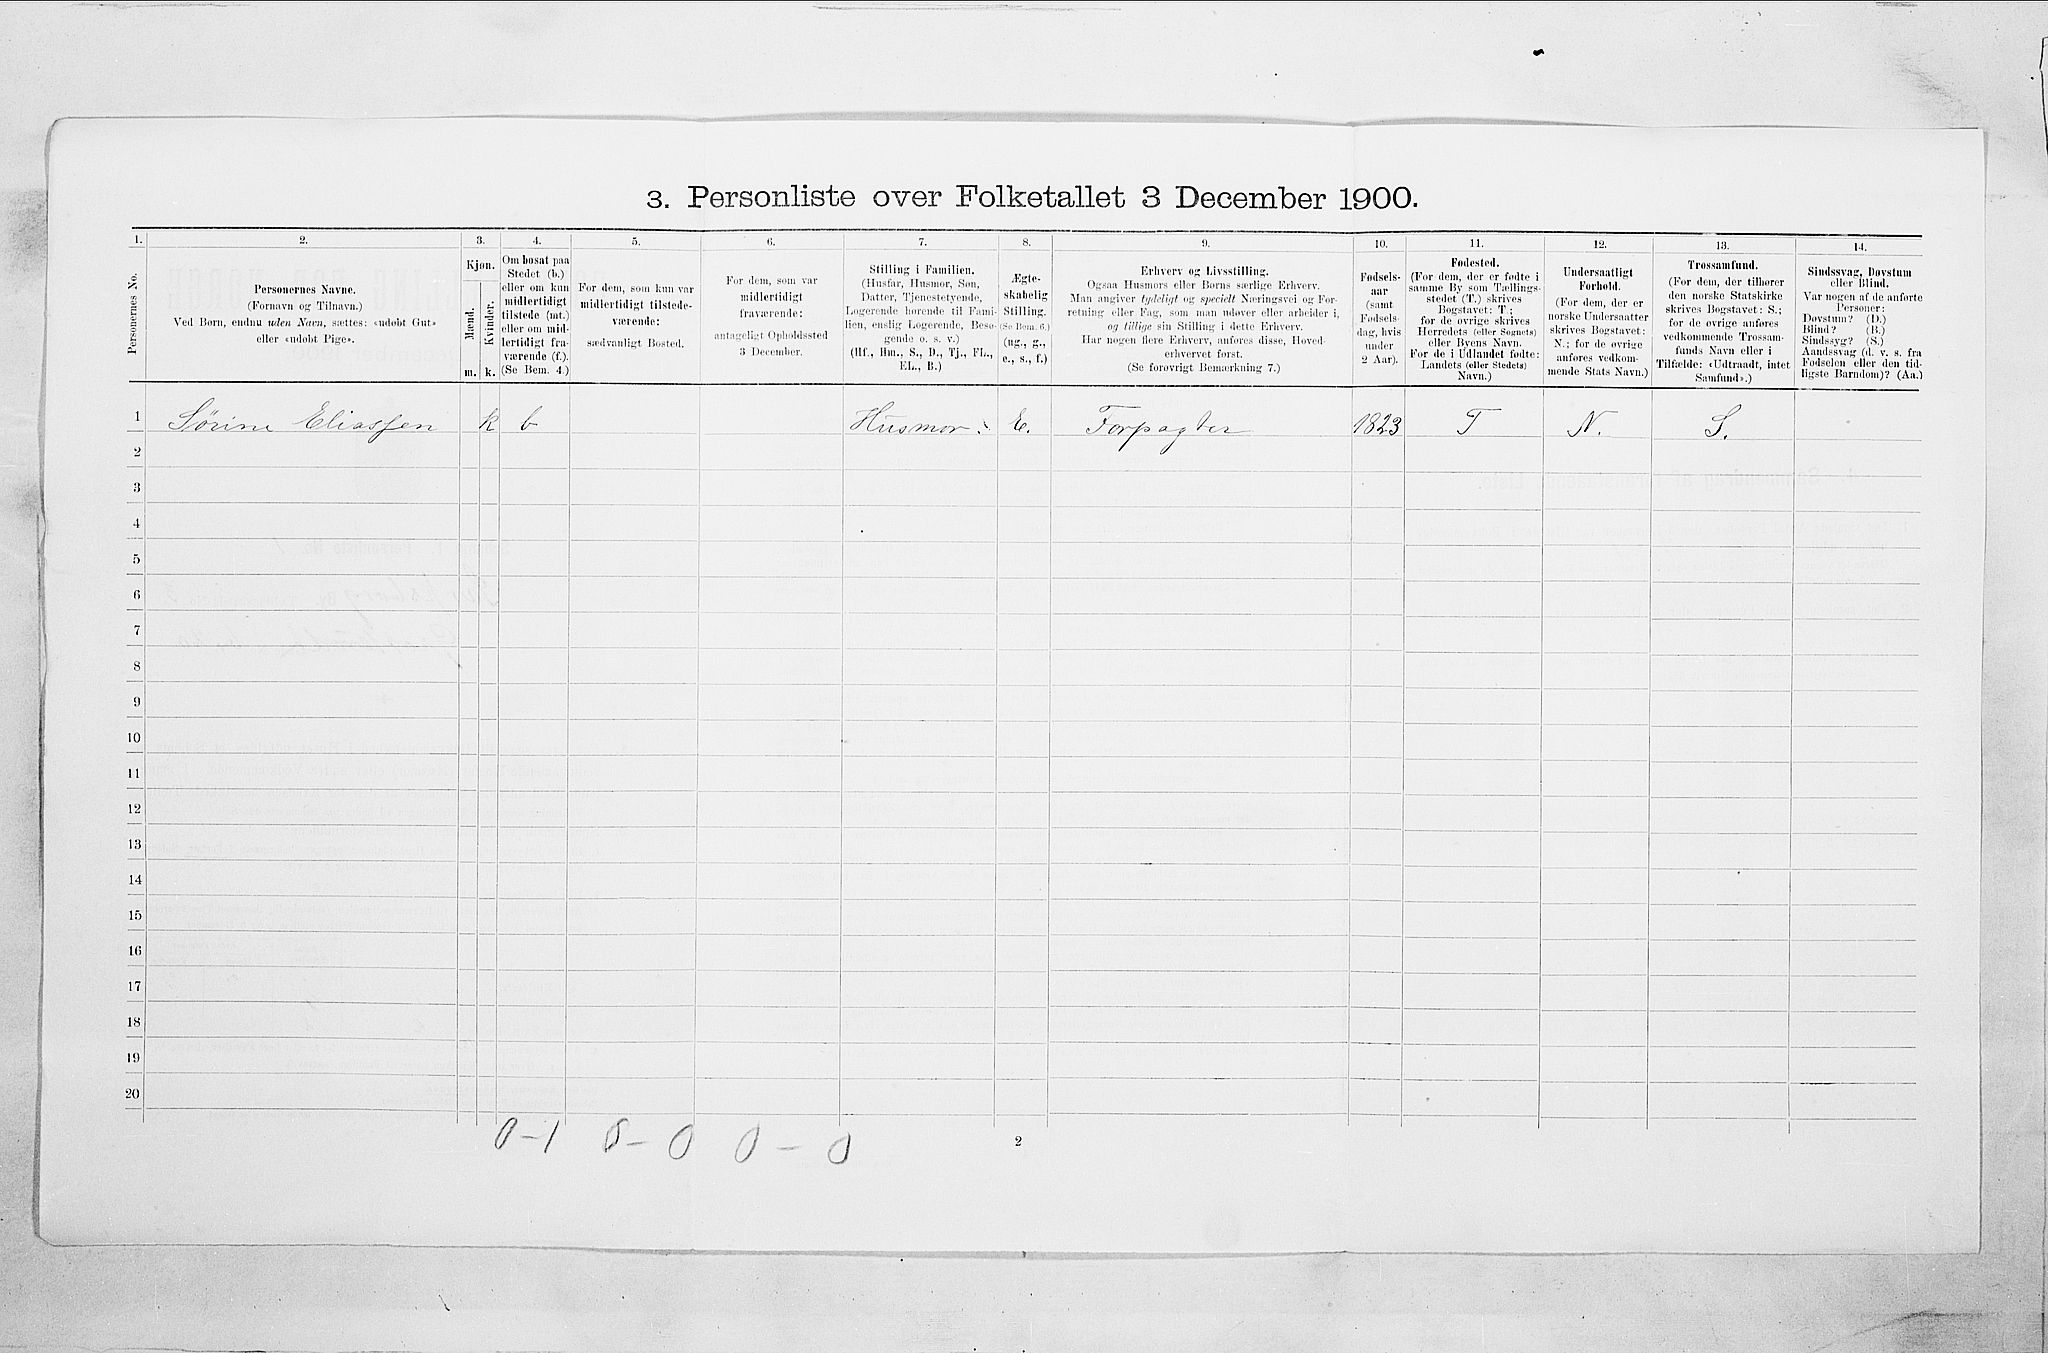 3. Personliste over Folketallet 3 December 1900.
1.
Personernes No.
2.
Personernes Navne.
(Fornavn og Tilnavn.)
Ved Børn, endnu uden Navn, sættes: «udøbt Gut»
eller «udøbt Pige».
3.
Kjøn.
Mænd.
Kvinder.
m. k.
4.
Om bosat paa
Stedet (b.)
eller om kun
midlertidigt
tilstede (mt.)
eller om mid-
lertidigt fra-
værende (f.).
(Se Bem. 4.)
5.
For dem, som kun var
midlertidigt tilstede-
værende:
sædvanligt Bosted.
6.
For dem, som var
midlertidigt
fraværende:
antageligt Opholdssted
3 December.
7.
Stilling i Familien.
(Husfar, Husmor, Søn,
Datter, Tjenestetyende,
Logerende hørende til Fami-
lien, enslig Logerende, Besø-
gende o. s. v.)
(Hf., Hm., S., D., Tj., FL.,
EL., B.)
8.
Ægte-
skabelig
Stilling.
(Se Bem. 6.)
(ug., g.,
e., s., f.)
9.
Erhverv og Livsstilling.
Ogsaa Husmors eller Børns særlige Erhverv.
Man angiver tydeligt og specielt Næringsvei og For-
retning eller Fag, som man udøver eller arbeider i,
og tillige sin Stilling i dette Erhverv.
Har nogen flere Erhverv, anføres disse, Hoved-
erhvervet først.
(Se forøvrigt Bemærkning 7.)
10.
Fødsels-
aar
(samt
Fødsels-
dag, hvis
under
2 Aar).
11.
Fødested.
(For dem, der er fødte i
samme By som Tællings-
stedet (T.) skrives
Bogstavet: T.;
for de øvrige skrives
Herredets (eller Sognets)
eller Byens Navn.
For de i Udlandet fødte:
Landets (eller Stedets)
Navn.)
12.
Undersaatligt
Forhold.
(For dem, der er
norske Undersaatter
skrives Bogstavet:
N.; for de øvrige
anføres vedkom-
mende Stats Navn.)
13.
Trossamfund.
(For dem, der tilhører
den norske Statskirke
skrives Bogstavet: S.;
for de øvrige anføres
vedkommende Trossam-
funds Navn eller i
Tilfælde: «Udtraadt, intet
Samfund».)
14.
Sindssvag, Døvstum
eller Blind.
Var nogen af de anførte
Personer:
Døvstum? (D.)
Blind? (B.)
Sindssyg? (S.)
Aandssvag (d. v. s. fra
Fødselen eller den tid-
ligste Barndom)? (Aa.)
1 Sørine Eliassen k b Husmor. E. Forpagter 1823 T N. S.
2
3
4
5
6
7
8
9
10
11
12
13
14
15
16
17
18
19
20
0-1 0-0 0-0
2